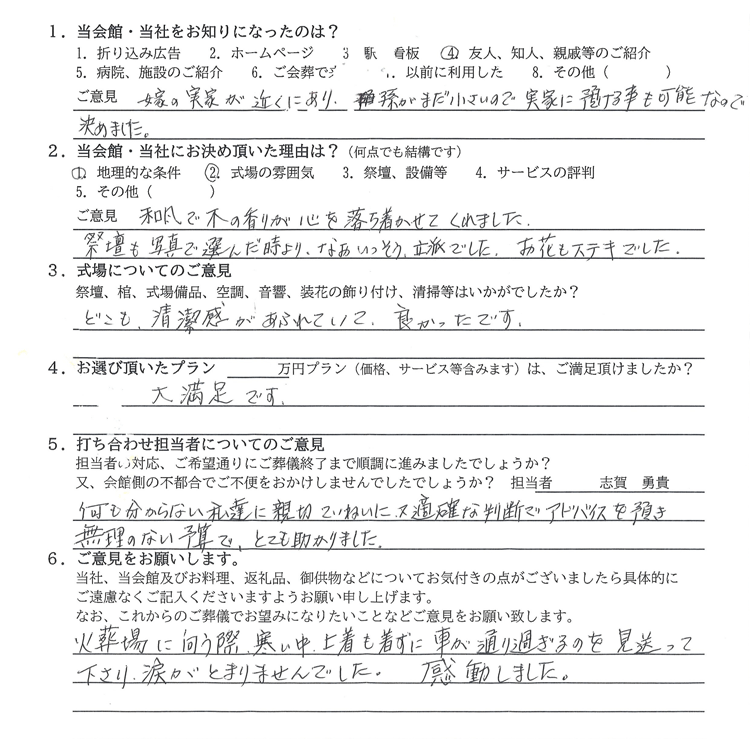 1．当会館・当社をお知りになったのは？
1. 折り込み広告　2. ホームページ　3　駅　看板　④. 友人、知人、親戚等のご紹介
5. 病院、施設のご紹介　6. ご会葬で　以前に利用した　8. その他（　　　）
ご意見　嫁の実家が近くにあり、孫がまだ小さいので実家に預ける事も可能なので
決めました。
2．当会館・当社にお決め頂いた理由は？（何点でも結構です）
①　地理的な条件　②. 式場の雰囲気　3. 祭壇、設備等　4. サービスの評判
5. その他（　　　）
ご意見　和風で木の香りが心を落ち着かせてくれました。
祭壇も写真で選んだ時より、なおいっそう、立派でした。お花もステキでした。
3．式場についてのご意見
祭壇、棺、式場備品、空調、音響、装花の飾り付け、清掃等はいかがでしたか？
どこも、清潔感があふれていて、良かったです。
4．お選び頂いたプラン　　　万円プラン（価格、サービス等含みます）は、ご満足頂けましたか？
大満足です。
5．打ち合わせ担当者についてのご意見
担当者の対応、ご希望通りにご葬儀終了まで順調に進みましたでしょうか？
又、会館側の不都合でご不便をおかけしませんでしたでしょうか？　担当者　志賀　勇貴
何も分からない私達に親切ていねいに、又適確な判断でアドバイスを頂き
無理のない予算で、とても助かりました。
6．ご意見をお願いします。
当社、当会館及びお料理、返礼品、御供物などについてお気付きの点がございましたら具体的に
ご遠慮なくご記入くださいますようお願い申し上げます。
なお、これからのご葬儀でお望みになりたいことなどご意見をお願い致します。
火葬場に向う際、寒い中、上着も着ずに車が通り過ぎるのを見送って
下さり、涙がとまりませんでした。感動しました。